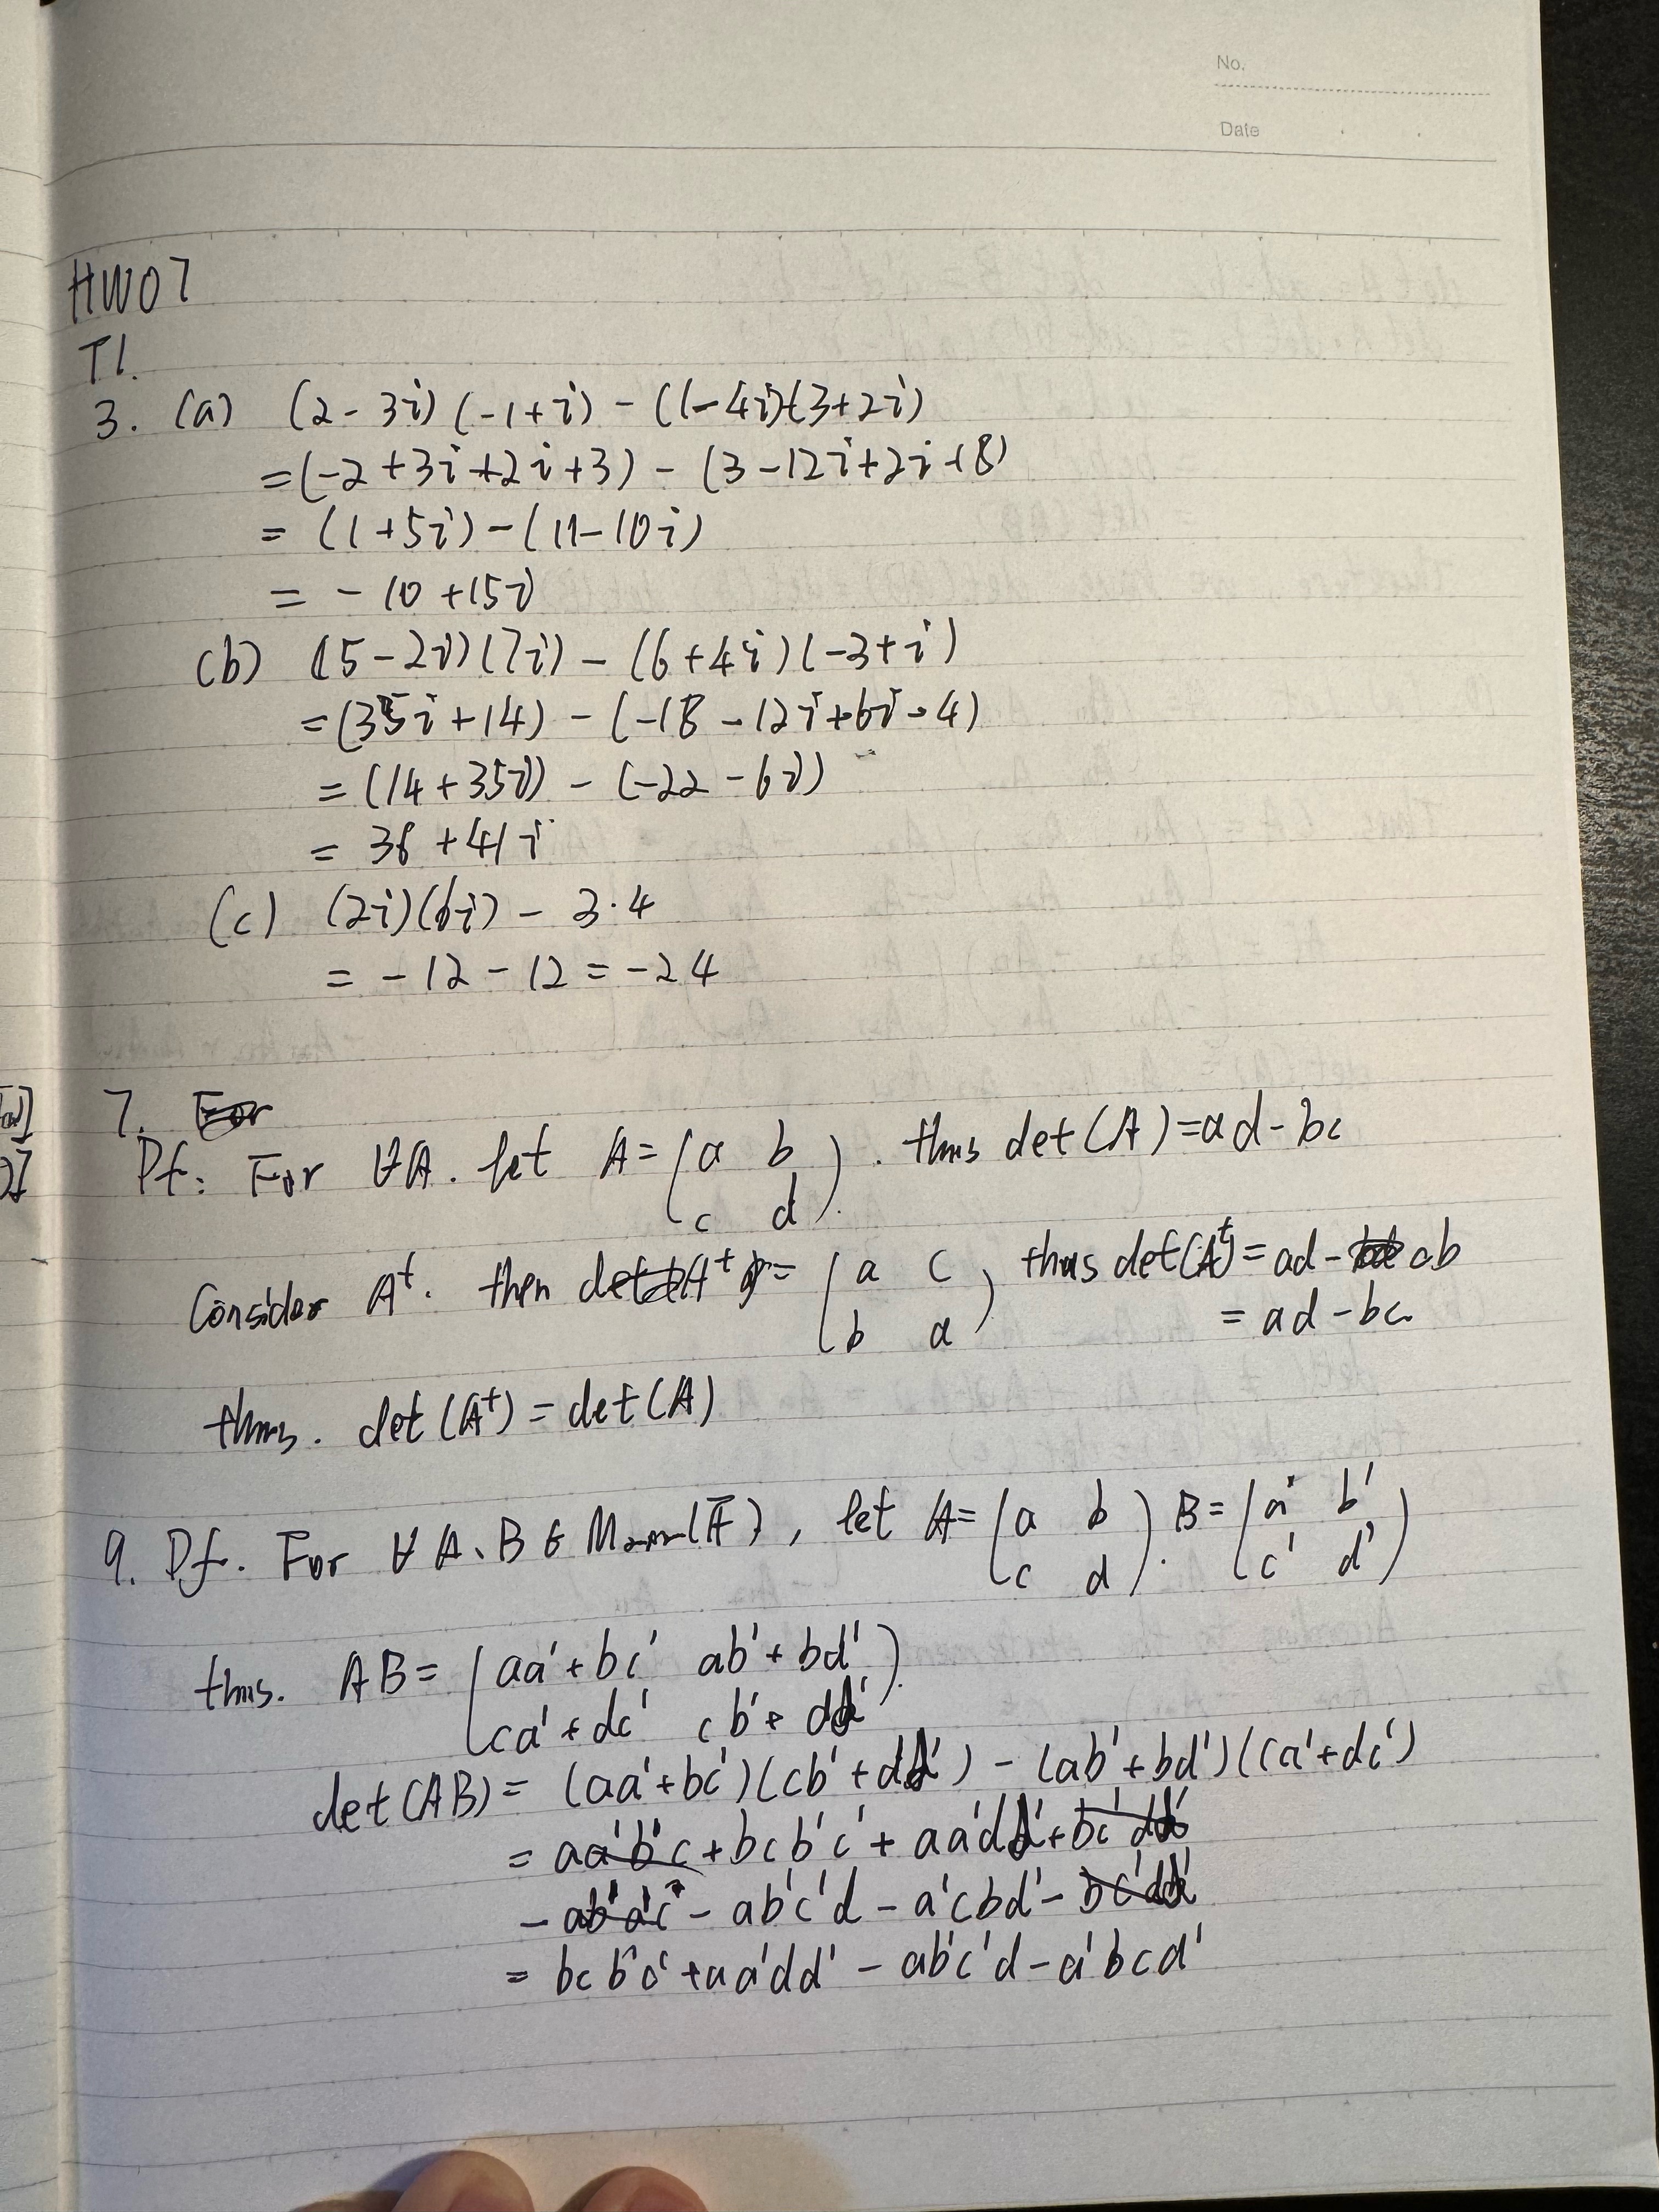 No.
Date
HW07
T1.
3. (a) (2-3i)(-1+i) - (1-4i)(3+2i)
=(-2+3i+2i+3) - (3-12i+2i+8)
= (1+5i) - (11-10i)
= -10+15i
(b) (5-2i)(7i) - (6+4i)(-3+i)
=(35i+14) - (-18-12i+6i-4)
= (14+35i) - (-22-6i)
= 36+41i
(c) (2i)(6i) - 3·4
= -12-12=-24
7. For
Pf: For ∀A. let A= (a b
c d). thus det(A)=ad-bc
Consider A^t. then det(A^t)= (a c
b d), thus det(A^t)=ad-cb
= ad-bc
thus. det(A^t)=det(A)
9. Pf. For ∀A、B∈M2×2(F), let A= (a b
c d). B= (a' b'
c' d')
thus. AB= (aa'+bc' ab'+bd'
ca'+dc' cb'+dd').
det(AB)= (aa'+bc')(cb'+dd') - (ab'+bd')(ca'+dc')
= aa'b'c+bcb'c'+aa'dd'+bc'dd'
-ab'a'c-ab'c'd-a'cbd'-bc'dd'
= bcb'c'+aa'dd'-ab'c'd-a'bcd'